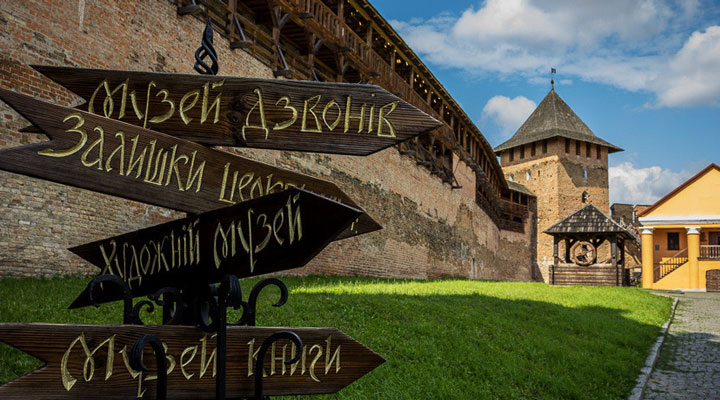 Музей дзвонів
Залишки
Художній музей
Музей книги